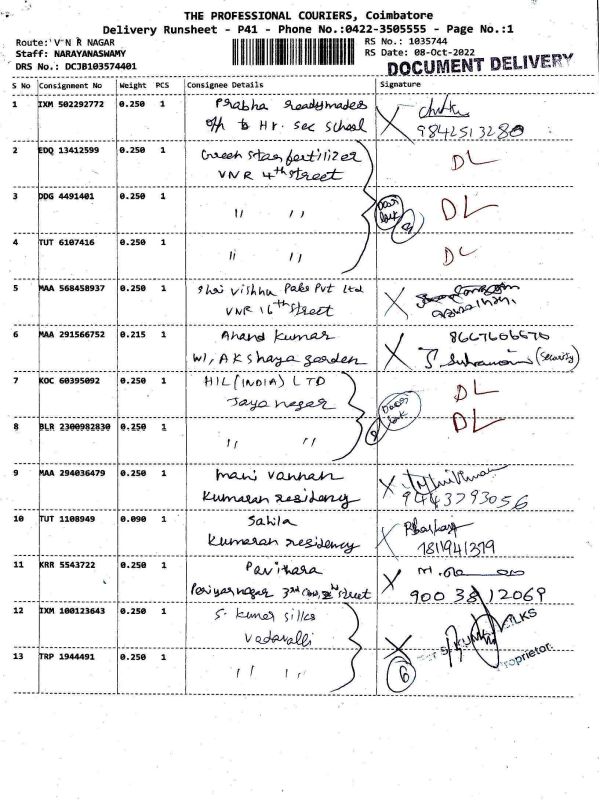 THE PROFESSIONAL COURIERS, Coimbatore
Delivery Runsheet - P41 - Phone No.:0422-3505555 - Page No.:1
Route: V N R NAGAR
RS No.: 1035744
Staff: NARAYANASWAMY
RS Date: 08-Oct-2022
DRS No.: DCJB103574401
DOCUMENT DELIVERY
S No Consignment No Weight PCS Consignee Details Signature
1 IXM 502292772 0.250 1 Prabha readymades
opp to Hr. sec school 9842513280
2 EDQ 13412599 0.250 1 Green star fertilizer DL
VNR 4th street
3 DDG 4491401 0.250 1 " " Door lock DL
4 TUT 6107416 0.250 1 " " DL
5 MAA 568458937 0.250 1 Shri Vishnu Pvt Ltd
VNR 16th street
6 MAA 291566752 0.215 1 Anand Kumar 8667606670
W1, Akshaya garden (Security)
7 KOC 60395092 0.250 1 HIL (INDIA) LTD DL
Jaya nagar Door lock
8 BLR 2300982830 0.250 1 " " DL
9 MAA 294036479 0.250 1 mani vannan
Kumaran residency 9443793056
10 TUT 1108949 0.090 1 Sahila
Kumaran residency 7811941379
11 KRR 5543722 0.250 1 Pavithara
Periyar nagar 3rd street 9003812069
12 IXM 100123643 0.250 1 S. Kumar silks
Vadavalli
For S. KUMAR SILKS
Proprietor
13 TRP 1944491 0.250 1 " " 6